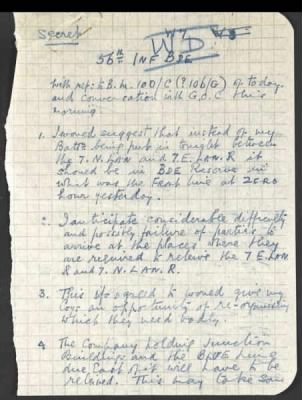 Secret
WD
56th INF BDE
With ref: to B.M. 100/C (?106/G) of today
and conversation with G.O.C. this
morning.
1. I would suggest that instead of my
Battn being put in tonight between
the 7. N. LAN and 7. E. LAN. R it
should be in BDE Reserve in
what was the front line at ZERO
hour yesterday.
2. I anticipate considerable difficulty
and possibly failure of parties to
arrive at the places where they
are required to relieve the 7 E. LAN
R and 7. N. LAN. R.
3. This if agreed to would give my
Coys an opportunity of re-organising
which they need badly.
4. The Company holding Junction
Buildings and the
due East of it will have to be
relieved. This may take some